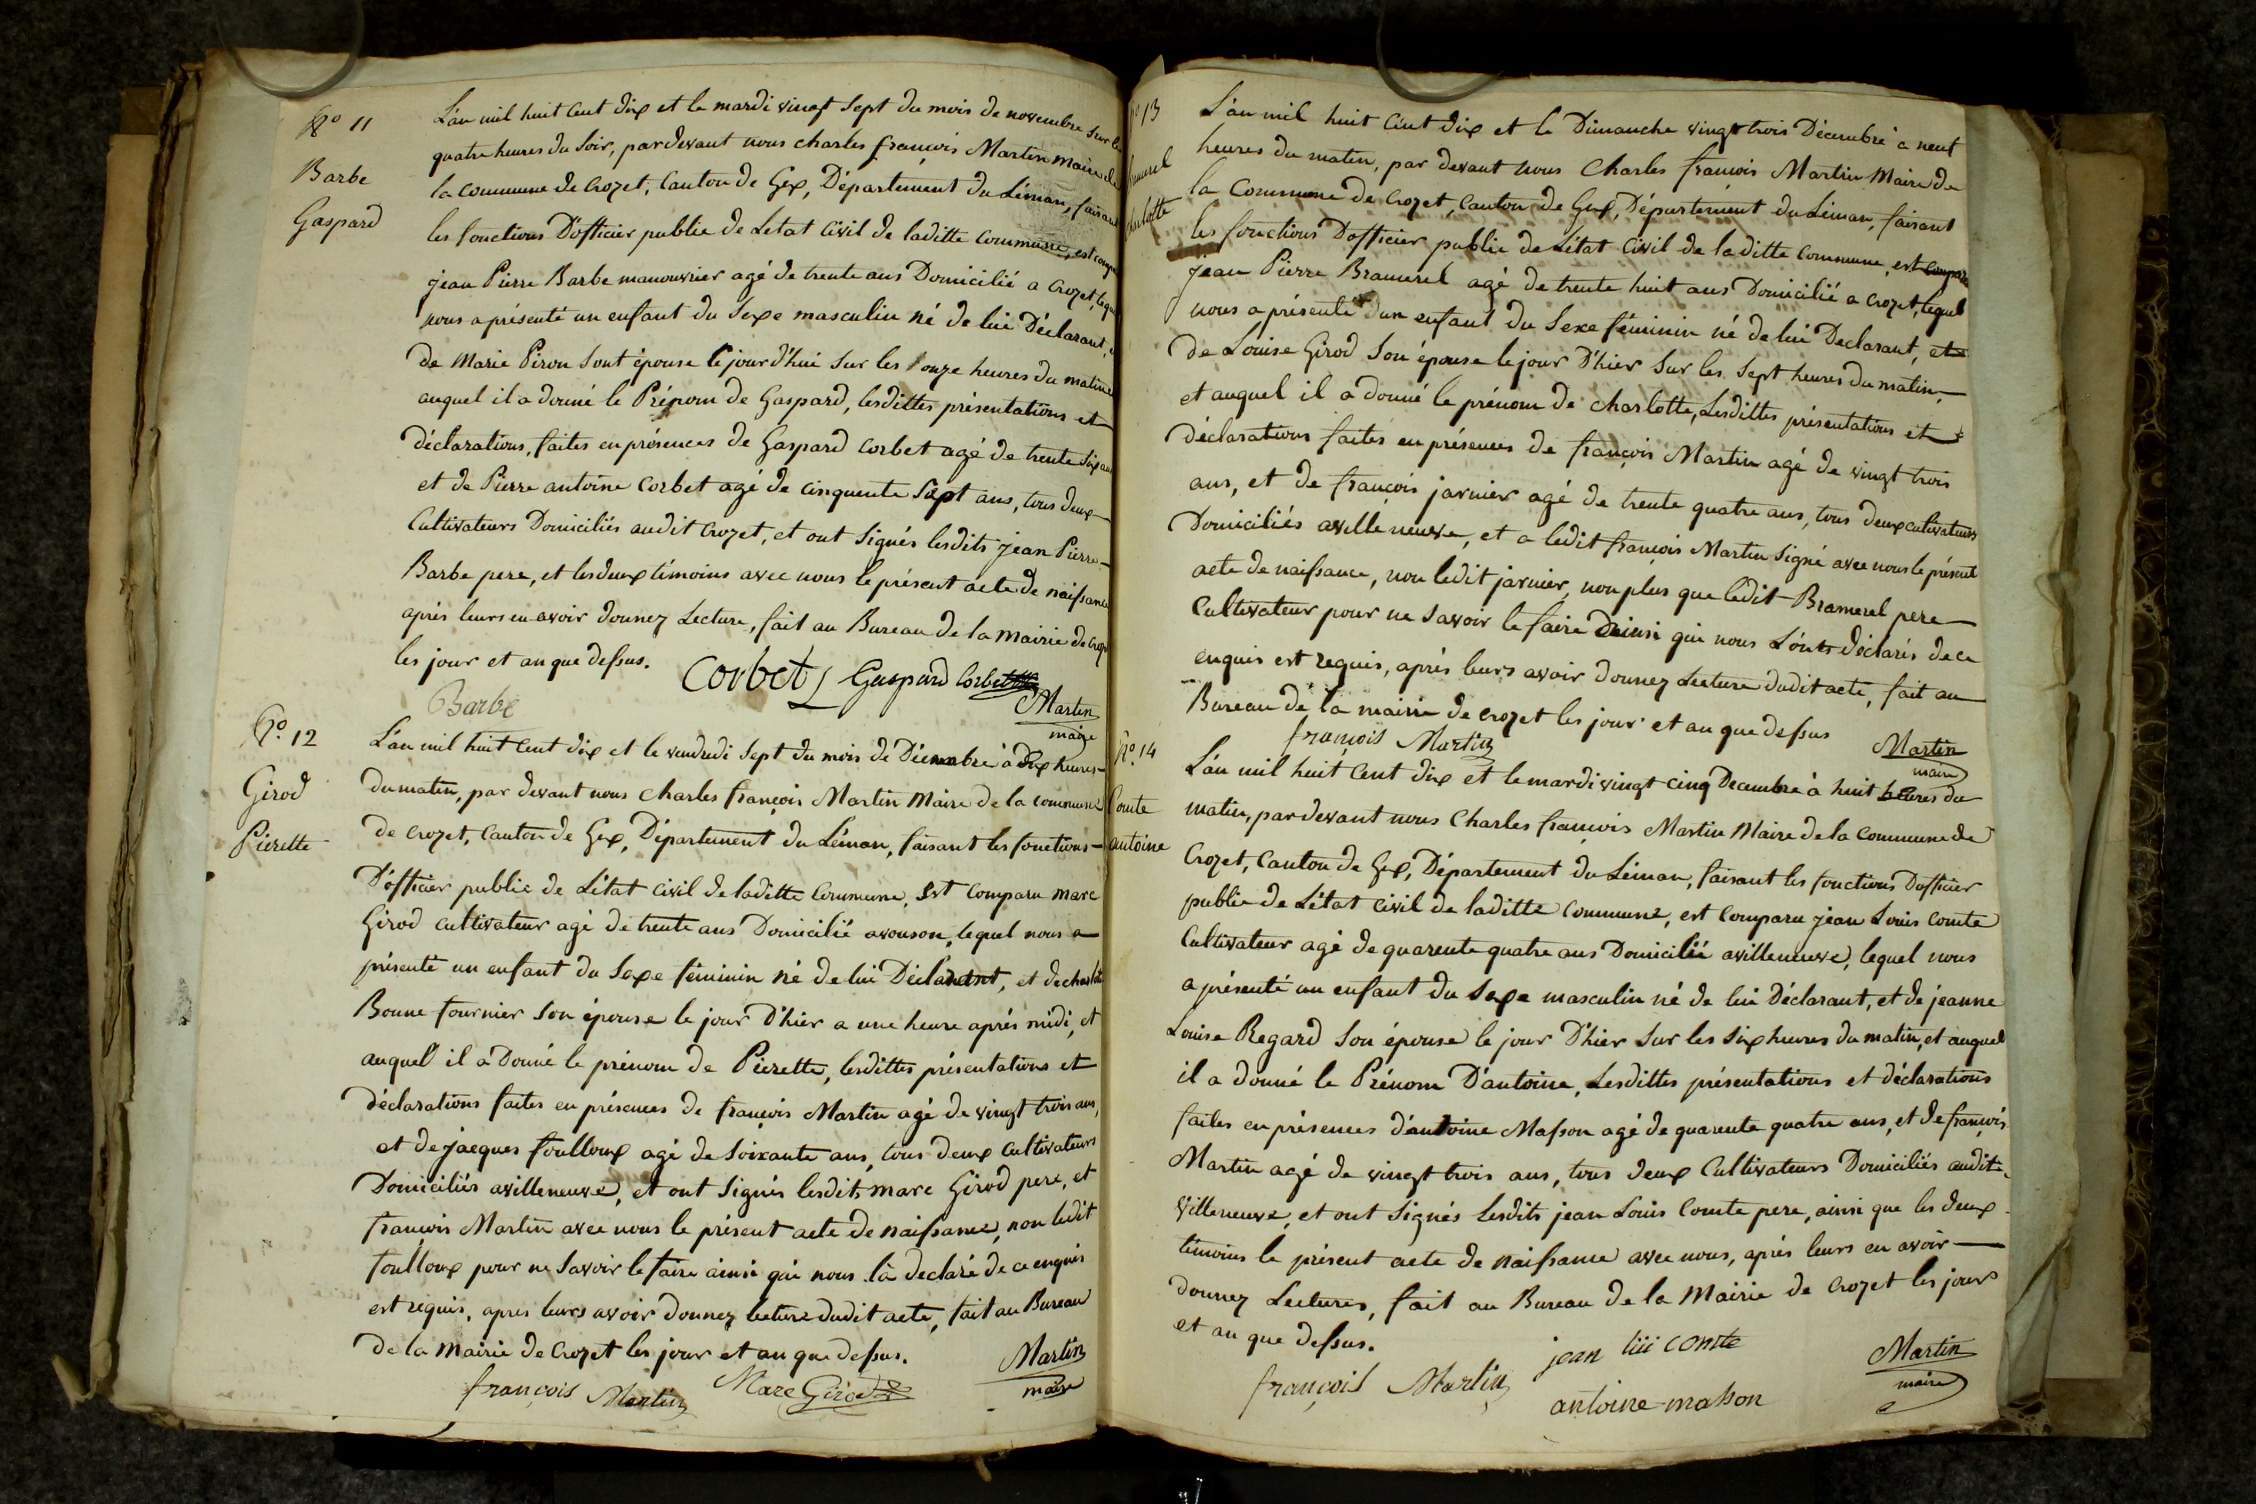 No 11
Barbe
Gaspard
L'an mil huit cent dix et le mardi vingt sept du mois de novembre sur les
quatre heures du soir, pardevant nous charles françois Martin maire de
la commune de crozet, Canton de Gex, Département du Léman, faisant
les fonctions D'officier public de Letat Civil de laditte commune, est
jean Pierre Barbe manouvrier agé de trente ans Domicilié a Crozet, lequel
nous a présenté un enfant du Sexe masculin né de lui Déclarant,
de Marie Piron sont épouse le jour d'hui sur les onze heures du matin
auquel il a donné le Prénom de Gaspard, lesdittes présentations et
déclarations, faites en présences de Gaspard Corbet agé de trente six ans
et de Pierre antoine Corbet agé de cinquente Sept ans, tous deux
Cultivateurs Domiciliés audit Crozet, et ont Signés lesdits jean Pierre
Barbe pere, et les deux témoins avec nous le présent acte de naissance
après leurs en avoir donnez Lecture, fait au Bureau de la Mairie de
les jour et an que dessus.
Corbet Gaspard Corbet
Barbe
Martin
maire
No. 12
Girod
Pierette
L'an mil huit cent dix et le vendredi Sept du mois de Décembre à Dix heures
du matin, par devant nous charles françois Martin Maire de la commune
de Crozet, Canton de Gex, Département du Léman, faisant les fonctions
D'officier public de L'état Civil de laditte Commune, est comparu marc
Girod cultivateur agé de trente ans Domicilié avouson, lequel nous a
présenté un enfant du Sexe féminin né de lui Déclarant, et de
Bonne fournier Son épouse le jour D'hier a une heure après midi, et
auquel il a Donné le prénom de Pierette, lesdittes présentations et
déclarations faites en présences de françois Martin agé de vingt trois ans,
et de jacques foulloux agé de Soixante ans, tous deux Cultivateurs
Domiciliés avilleneuve, et ont Signés lesdits marc Girod pere, et
françois Martin avec nous le présent acte de naissance, non ledit
foulloux pour ne Savoir le faire ainsi qui nous là declaré de ce enquis
est requis, après leurs avoir donnez lecture dudit acte, fait au Bureau
de la Mairie de Crozet les jour et an que dessus.
françois Martin Marc Girod
Martin
maire
No 13
L'an mil huit Cent dix et le Dimanche vingt trois Décembre à neuf
heures du matin, par devant nous Charles françois Martin Maire de
la Commune de Crozet, Canton de Gex, Département du Léman, faisant
les fonctions D'officier public de L'état Civil de laditte Commune, est
jean Pierre Bramerel agé de trente huit ans Domicilié a crozet, lequel
nous a présenté d'un enfant du Sexe féminin né de lui Declarant, et
de Louise Girod Son épouse le jour D'hier sur les Sept heures du matin,
et auquel il a donné le prénom de charlotte, Lesdittes présentations et
déclarations faites en présences de françois Martin agé de vingt trois
ans, et de françois jarnier agé de trente quatre ans, tous deux cultivateurs
Domiciliés avilleneuve, et a ledit françois Martin Signé avec nous le présent
acte de naissance, non ledit jarnier, non plus que ledit Bramerel pere
Cultivateur pour ne Savoir le faire ainsi qui nous L'onts déclarés de ce
enquis est requis, après leurs avoir donnez Lecture dudit acte, fait au
Bureau de la mairie de crozet les jour et an que dessus
françois Martin
Martin
maire
No. 14
Comte
antoine
L'an mil huit Cent dix et le mardi vingt cinq Decembre à huit heures du
matin, par devant nous Charles françois Martin Maire de la Commune de
Crozet, Canton de Gex, Département du Léman, faisant les fonctions D'officier
public de L'état Civil de laditte Commune, est Comparu jean Louis comte
Cultivateur agé de quarente quatre ans Domicilié avilleneuve, lequel nous
a présenté un enfant du Sexe masculin né de lui Déclarant, et de jeanne
Louise Regard Son épouse le jour D'hier Sur les Six heures du matin, et auquel
il a donné le Prénom D'antoine, Lesdittes présentations et déclarations
faites en présences d'antoine Masson agé de quarente quatre ans, et de françois
Martin agé de vingt trois ans, tous deux Cultivateurs Domiciliés audit
Villeneuve, et ont Signés Lesdits jean Louis Comte pere, ainsi que les deux
témoins le présent acte de Naissance avec nous, après leurs en avoir
donnez Lectures, fait au Bureau de la Mairie de Crozet les jours
et an que dessus.
jean comte
françois Martin
antoine masson
Martin
maire